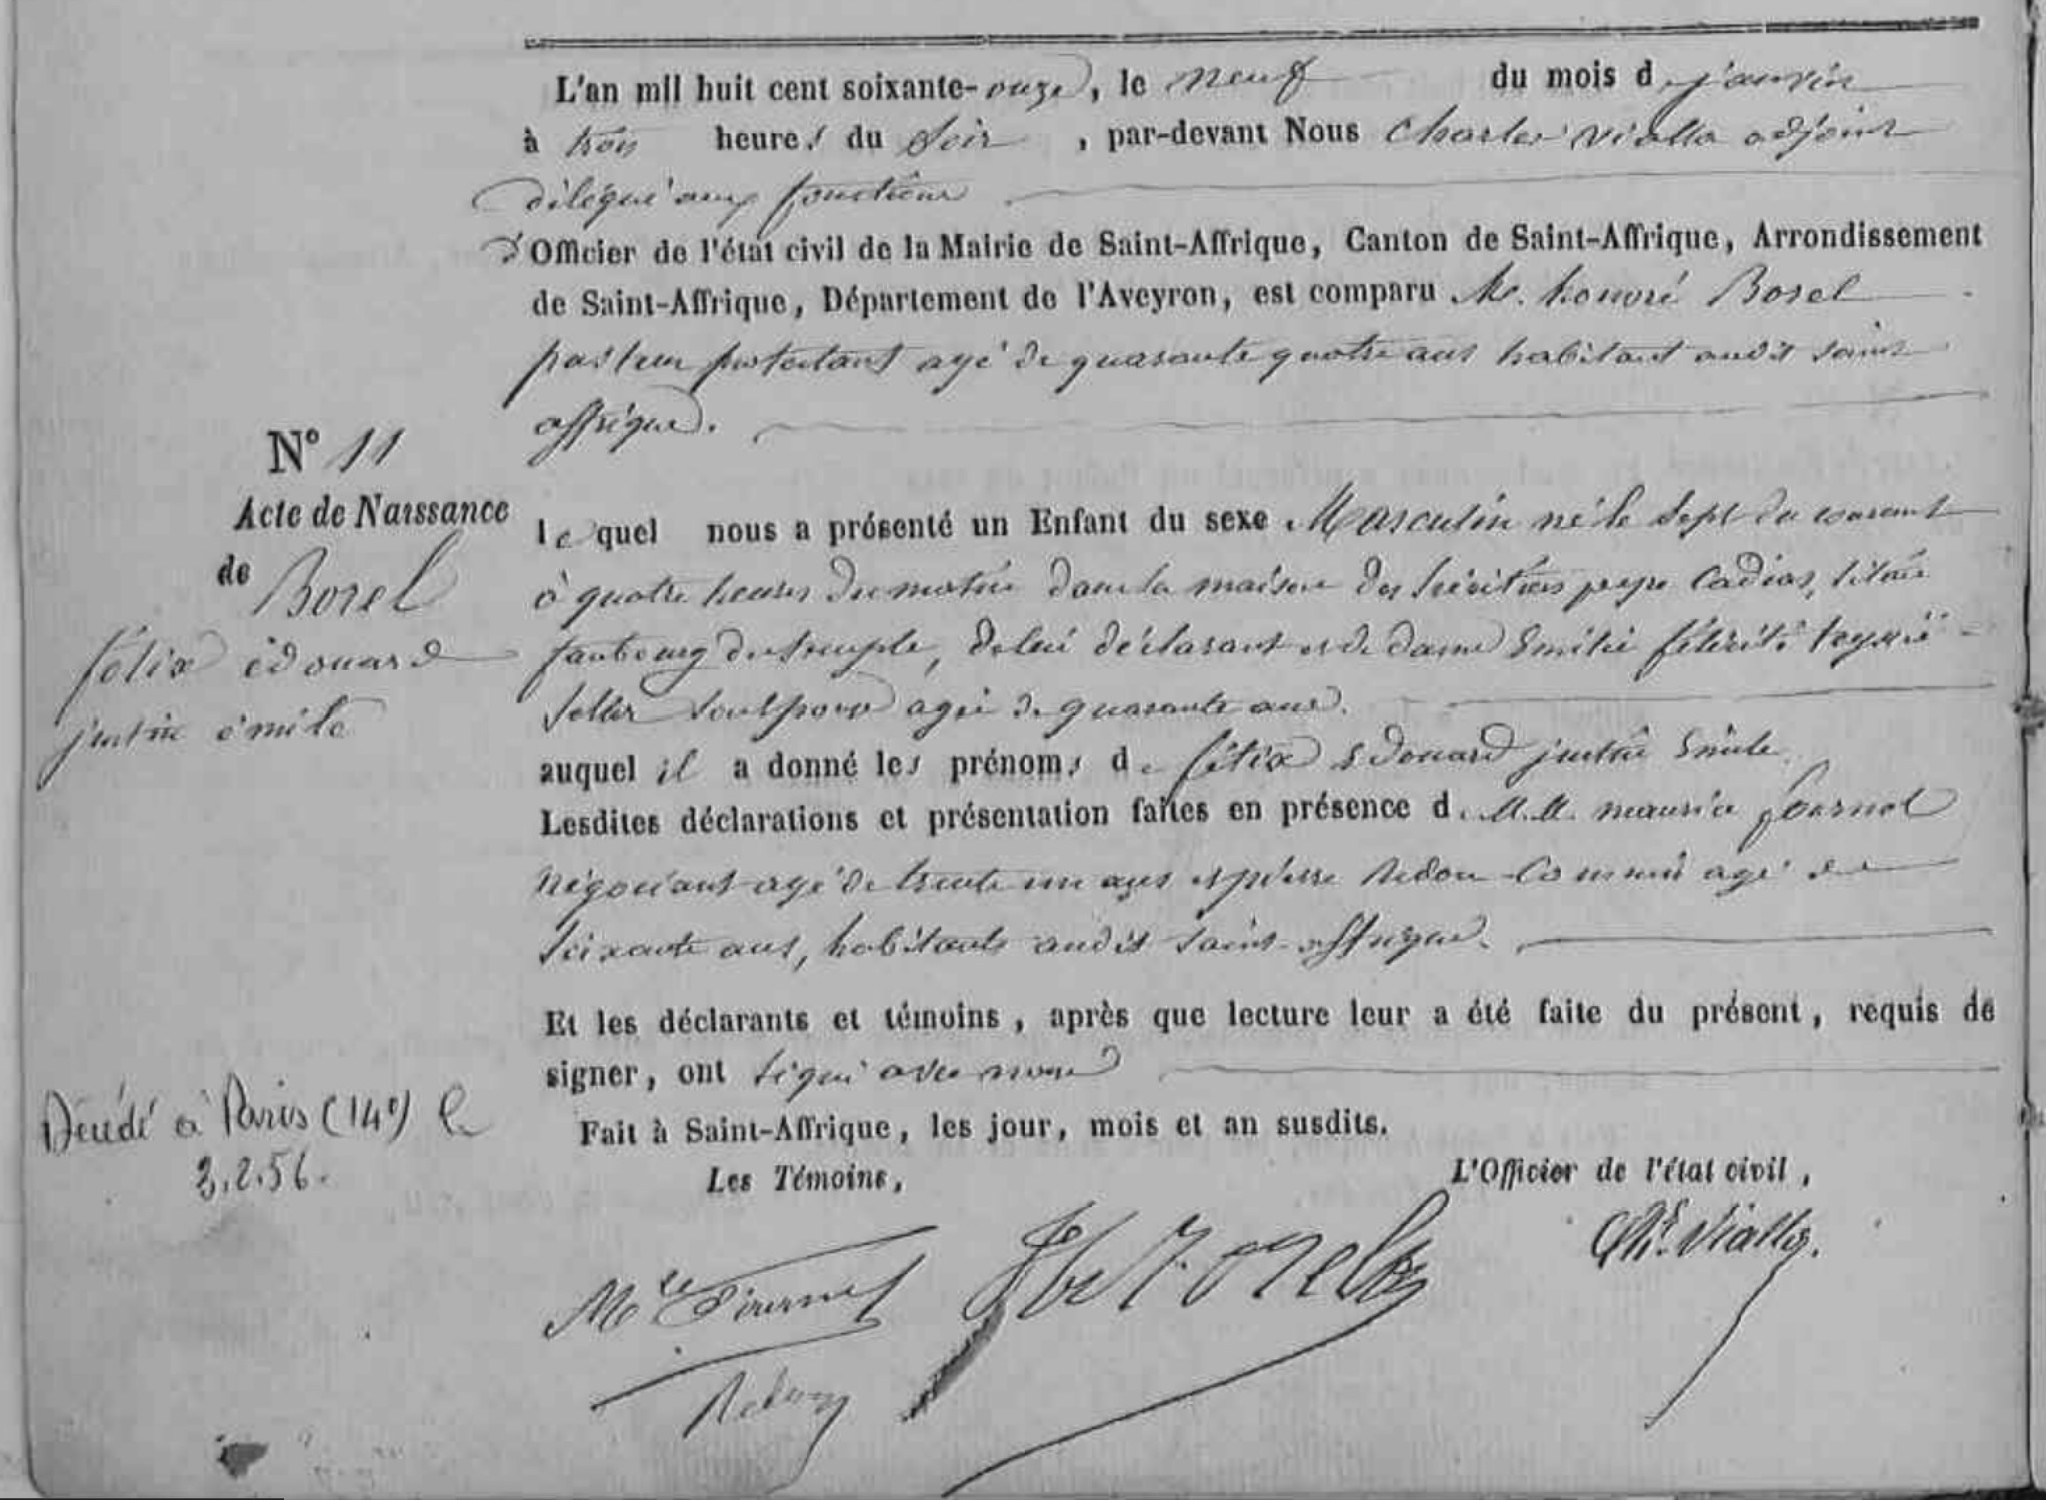 L'an mil huit cent soixante-onze, le neuf du mois de janvier
à trois heures du soir, par-devant Nous Charles Vialla adjoint
délégué aux fonctions
d'Officier de l'état civil de la Mairie de Saint-Affrique, Canton de Saint-Affrique, Arrondissement
de Saint-Affrique, Département de l'Aveyron, est comparu M. honoré Borel
pasteur protestant agé de quarante quatre ans habitant audit saint
affrique.
N° 11
Acte de Naissance
de Borel
félix édouard
justin émile
lequel nous a présenté un Enfant du sexe Masculin né le sept du courant
à quatre heures du matin dans la maison des héritiers Cadias, située
faubourg du temple, de lui déclarant et de dame Emilie félicité
agée de quarante ans.
auquel il a donné les prénoms de félix Edouard justin Emile
Lesdites déclarations et présentation faites en présence d. M.M. maurice fournol
négociant agé de trente un ans et pierre Redon commis agé de
soixante ans, habitants audit saint-affrique.
Et les déclarants et témoins, après que lecture leur a été faite du présent, requis de
signer, ont signé avec nous
Décédé à Paris (14e) le
3.2.56.
Fait à Saint-Affrique, les jour, mois et an susdits.
Les Témoins,
L'Officier de l'état civil,
Mce Fournol
Hre Borel
Ch. Vialla.
Redon